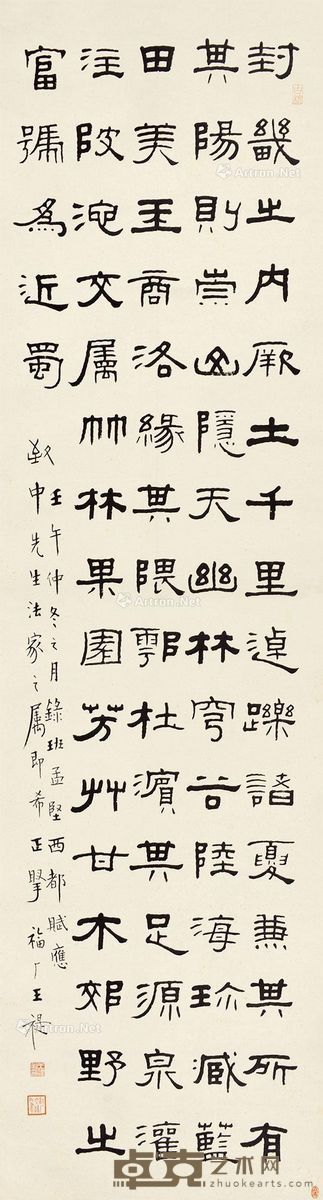 封畿之内厥土千里逴躒諸夏兼其所有
其陽則崇山隱天幽林穹谷陸海珍藏藍
田美玉商洛緣其隈鄠杜濱其足源泉灌
注陂池交屬竹林果園芳艸甘木郊野之
富號為近蜀
壬午仲冬之月錄班孟堅西都賦應
中先生法家之屬即希正 福厂王禔
Artron.Net
卓克艺术网
www.zhuokearts.com